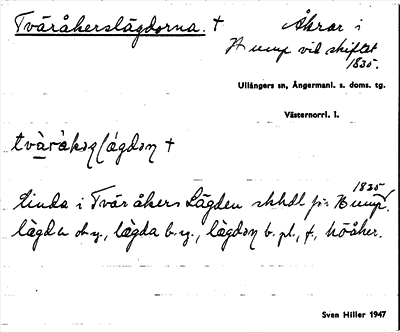 Tväråkerslägdorna. † Åkrar i
Hump vid skiftet
1835.
Ullångers sn, Ångermanl. s. doms. tg.
Västernorrl. l.
linda i Tväråkers Lägden skhdl för Hump 1835.
lägda ob. y., lägda b. y., b. pl., f., höåker.
Sven Hiller 1947